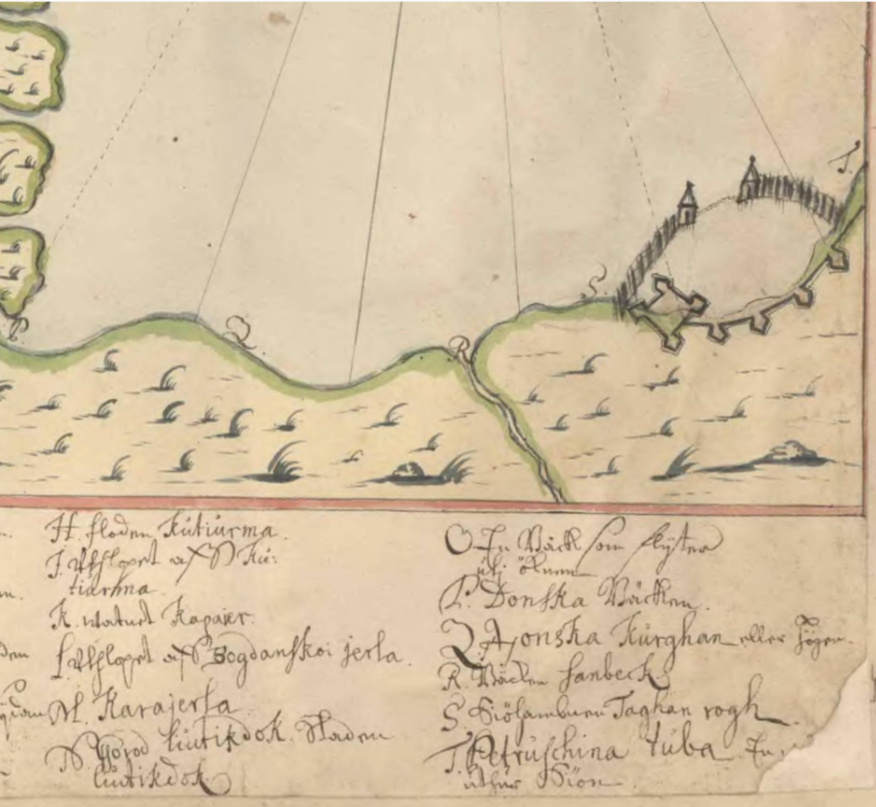 P
Q
R
S
T
H. floden Kutiurma.
I. Uthlopet af D Ku:
tiurma.
K. watnet Kapaier.
L. Uthlopet af Bogdanskoi jerla.
M. Karajerla
N Gorod Liutikdok. Staden
Liutikdok
O En Bäck som flyter
uti
P. Donska Bäcken.
Q Ajonska Kurghan eller högen.
R. Bäcken Sanbeck
S Siöhambnen Taghan rogh
T. Petruschina tuba. En
uthur Siön